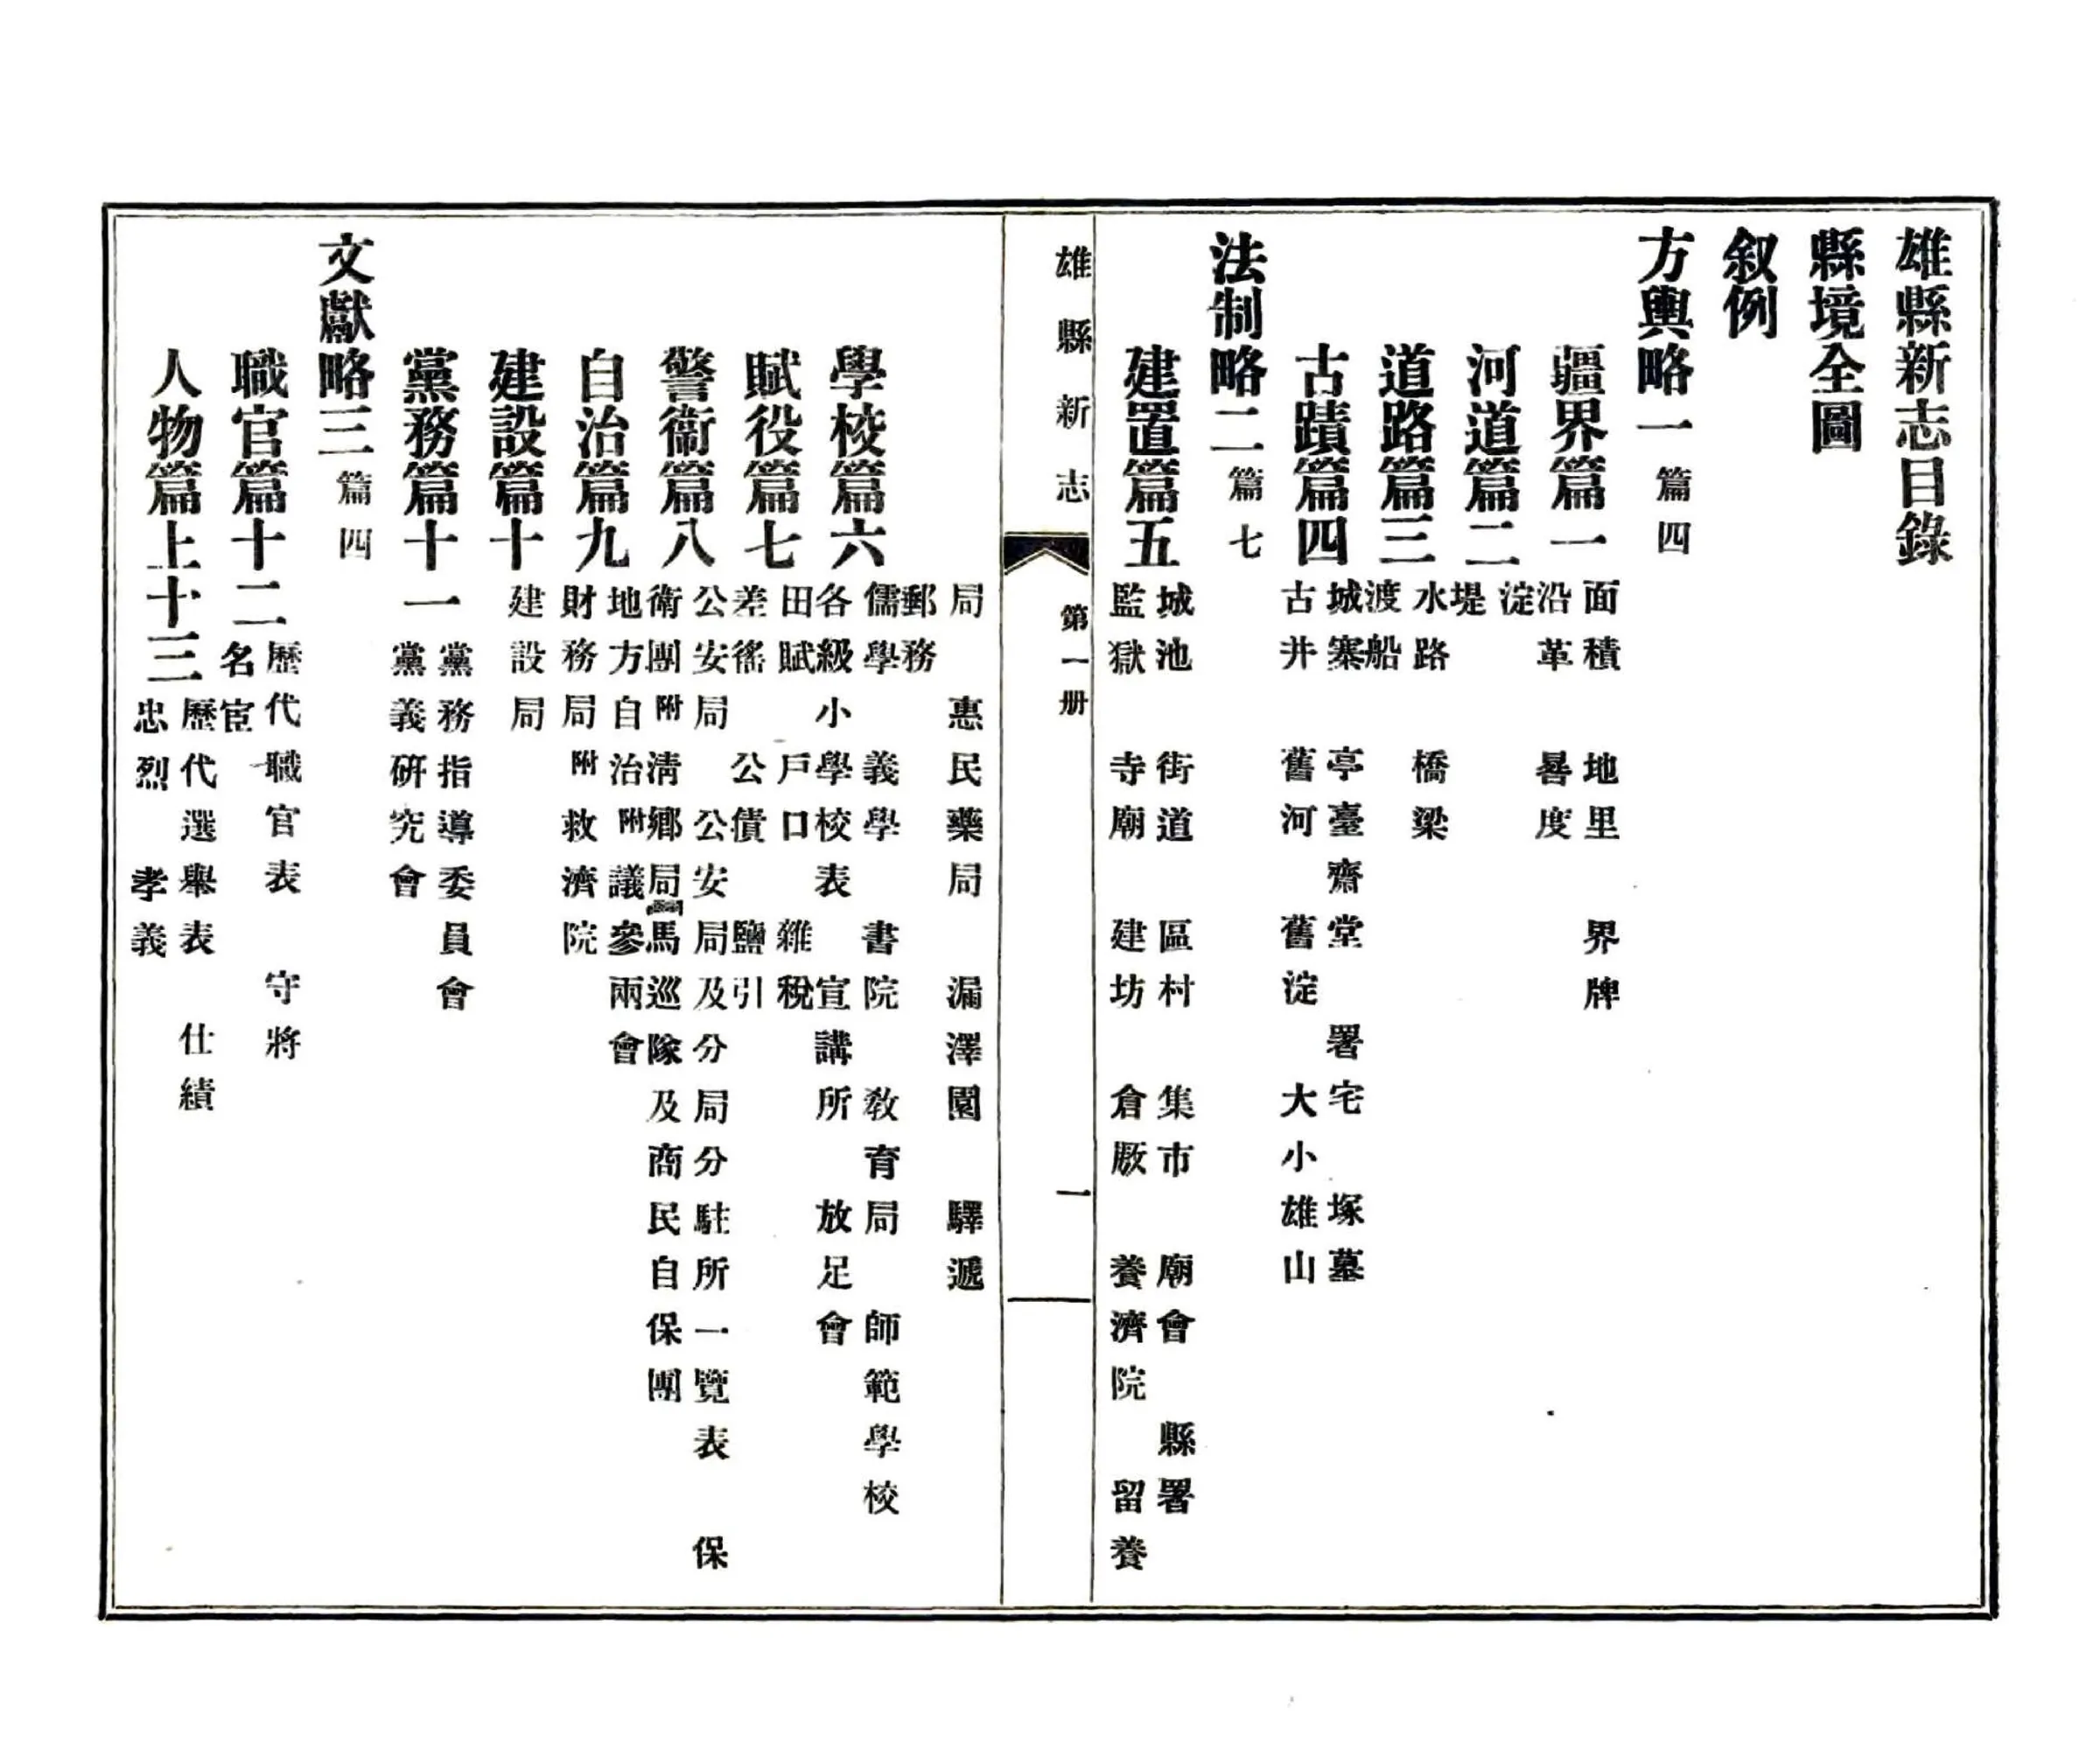 雄縣新志目錄
縣境全圖
叙例
方輿略一 篇四
疆界篇一 面積 地里 界牌
沿革 晷度
河道篇二 淀
堤
道路篇三 水路 橋梁
渡船
古蹟篇四 城寨 亭臺齋堂 署宅 塚墓
古井 舊河 舊淀 大小雄山
法制略二 篇七
建置篇五 城池 街道 區村 集市 廟會 縣署
監獄 寺廟 建坊 倉厫 養濟院 留養
雄縣新志 第一册 一
局 惠民藥局 漏澤園 驛遞
郵務
學校篇六 儒學 義學 書院 敎育局 師範學校
各級小學校表 宣講所 放足會
賦役篇七 田賦 戶口 雜稅
差徭 公債 鹽引
警衞篇八 公安局 公安局及分局分駐所一覽表 保
衛團 附清鄉局 馬巡隊及商民自保團
自治篇九 地方自治 附議參兩會
財務局 附救濟院
建設篇十 建設局
黨務篇十一 黨務指導委員會
黨義研究會
文獻略三 篇四
職官篇十二 歷代職官表 守將
名宦
人物篇上十三 歷代選舉表 仕績
忠烈 孝義